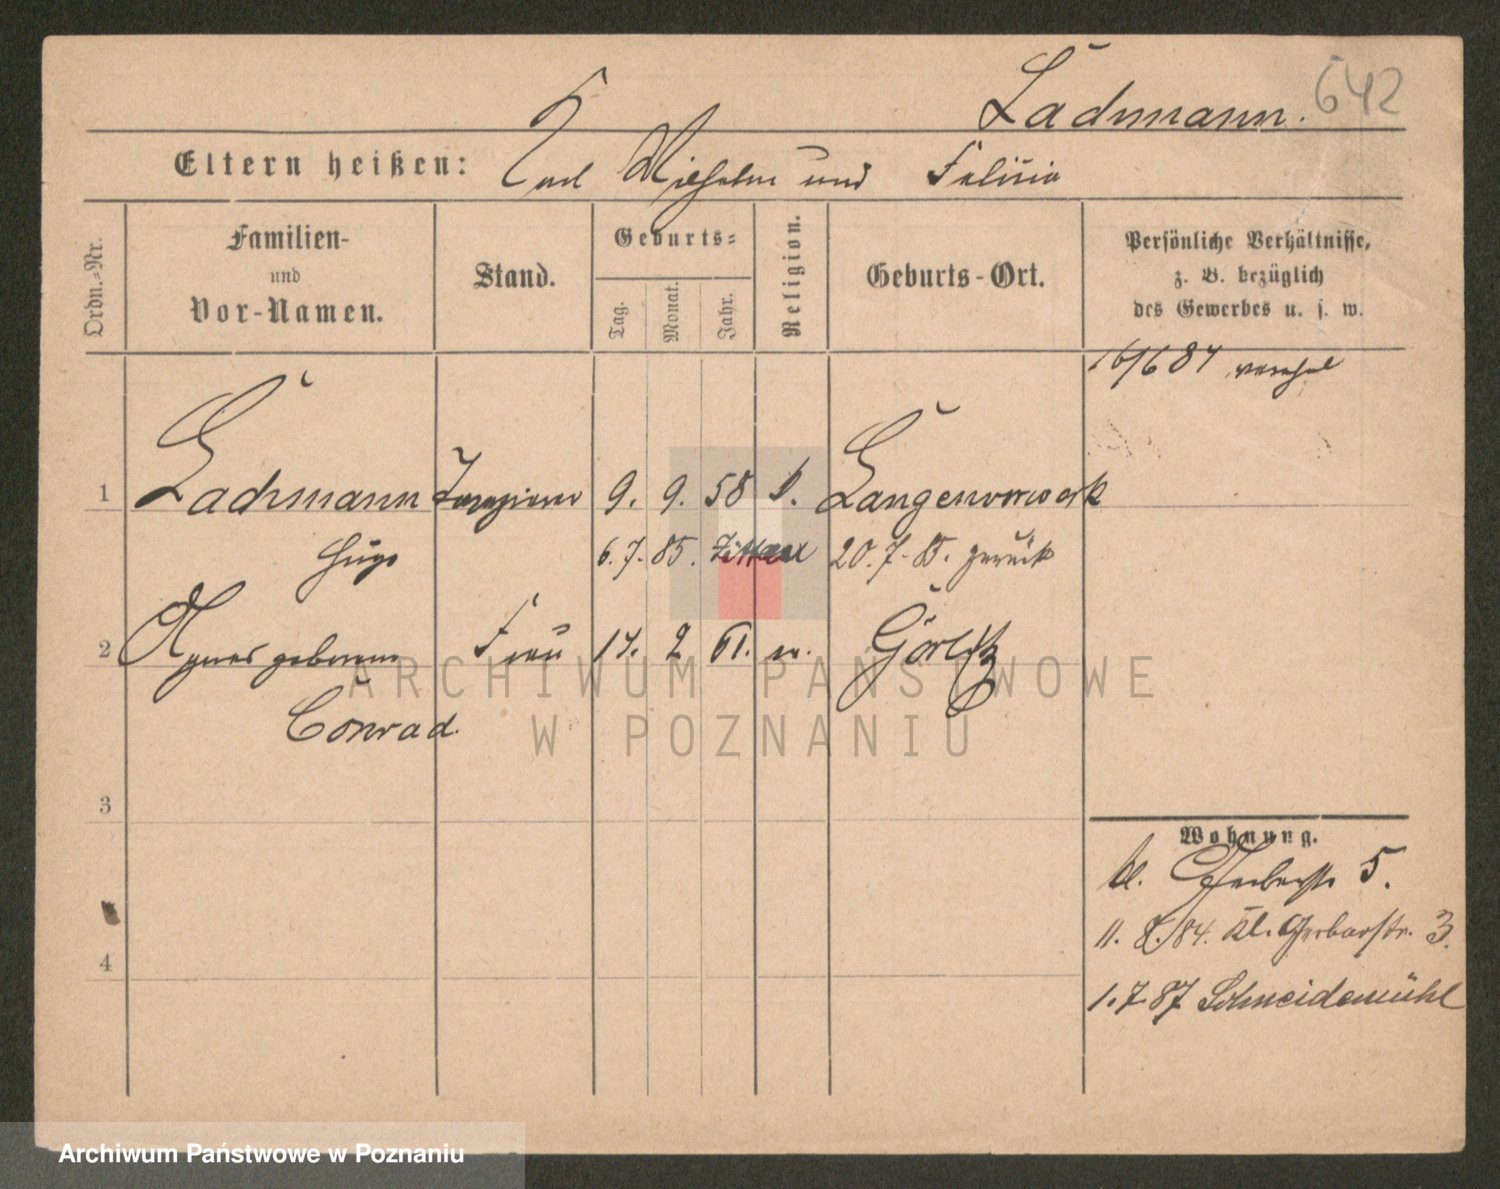 Lachmann. 642
Eltern heißen: Karl Wilhelm und Felicia
Ordn.-Nr.
Familien-
und
Vor-Namen.
Stand.
Geburts-
Tag.
Monat.
Jahr.
Religion.
Geburts-Ort.
Persönliche Verhältnisse,
z. B. bezüglich
des Gewerbes u. s. w.
16/6 84 verehel
1 Lachmann Tapezierer 9. 9. 58 Langenvorwerk
Hugo 6. 7. 85. Zittau 20. 7. 85. zurück
2 Agnes geborene Frau 17. 2 61. ev. Görlitz
Conrad.
3
4
Wohnung.
kl. Gerberstr 5.
11. 8./84. Kl. Gerberstr. 3.
1. 7. 87 Schneidemühl
ARCHIWUM PAŃSTWOWE
W POZNANIU
Archiwum Państwowe w Poznaniu